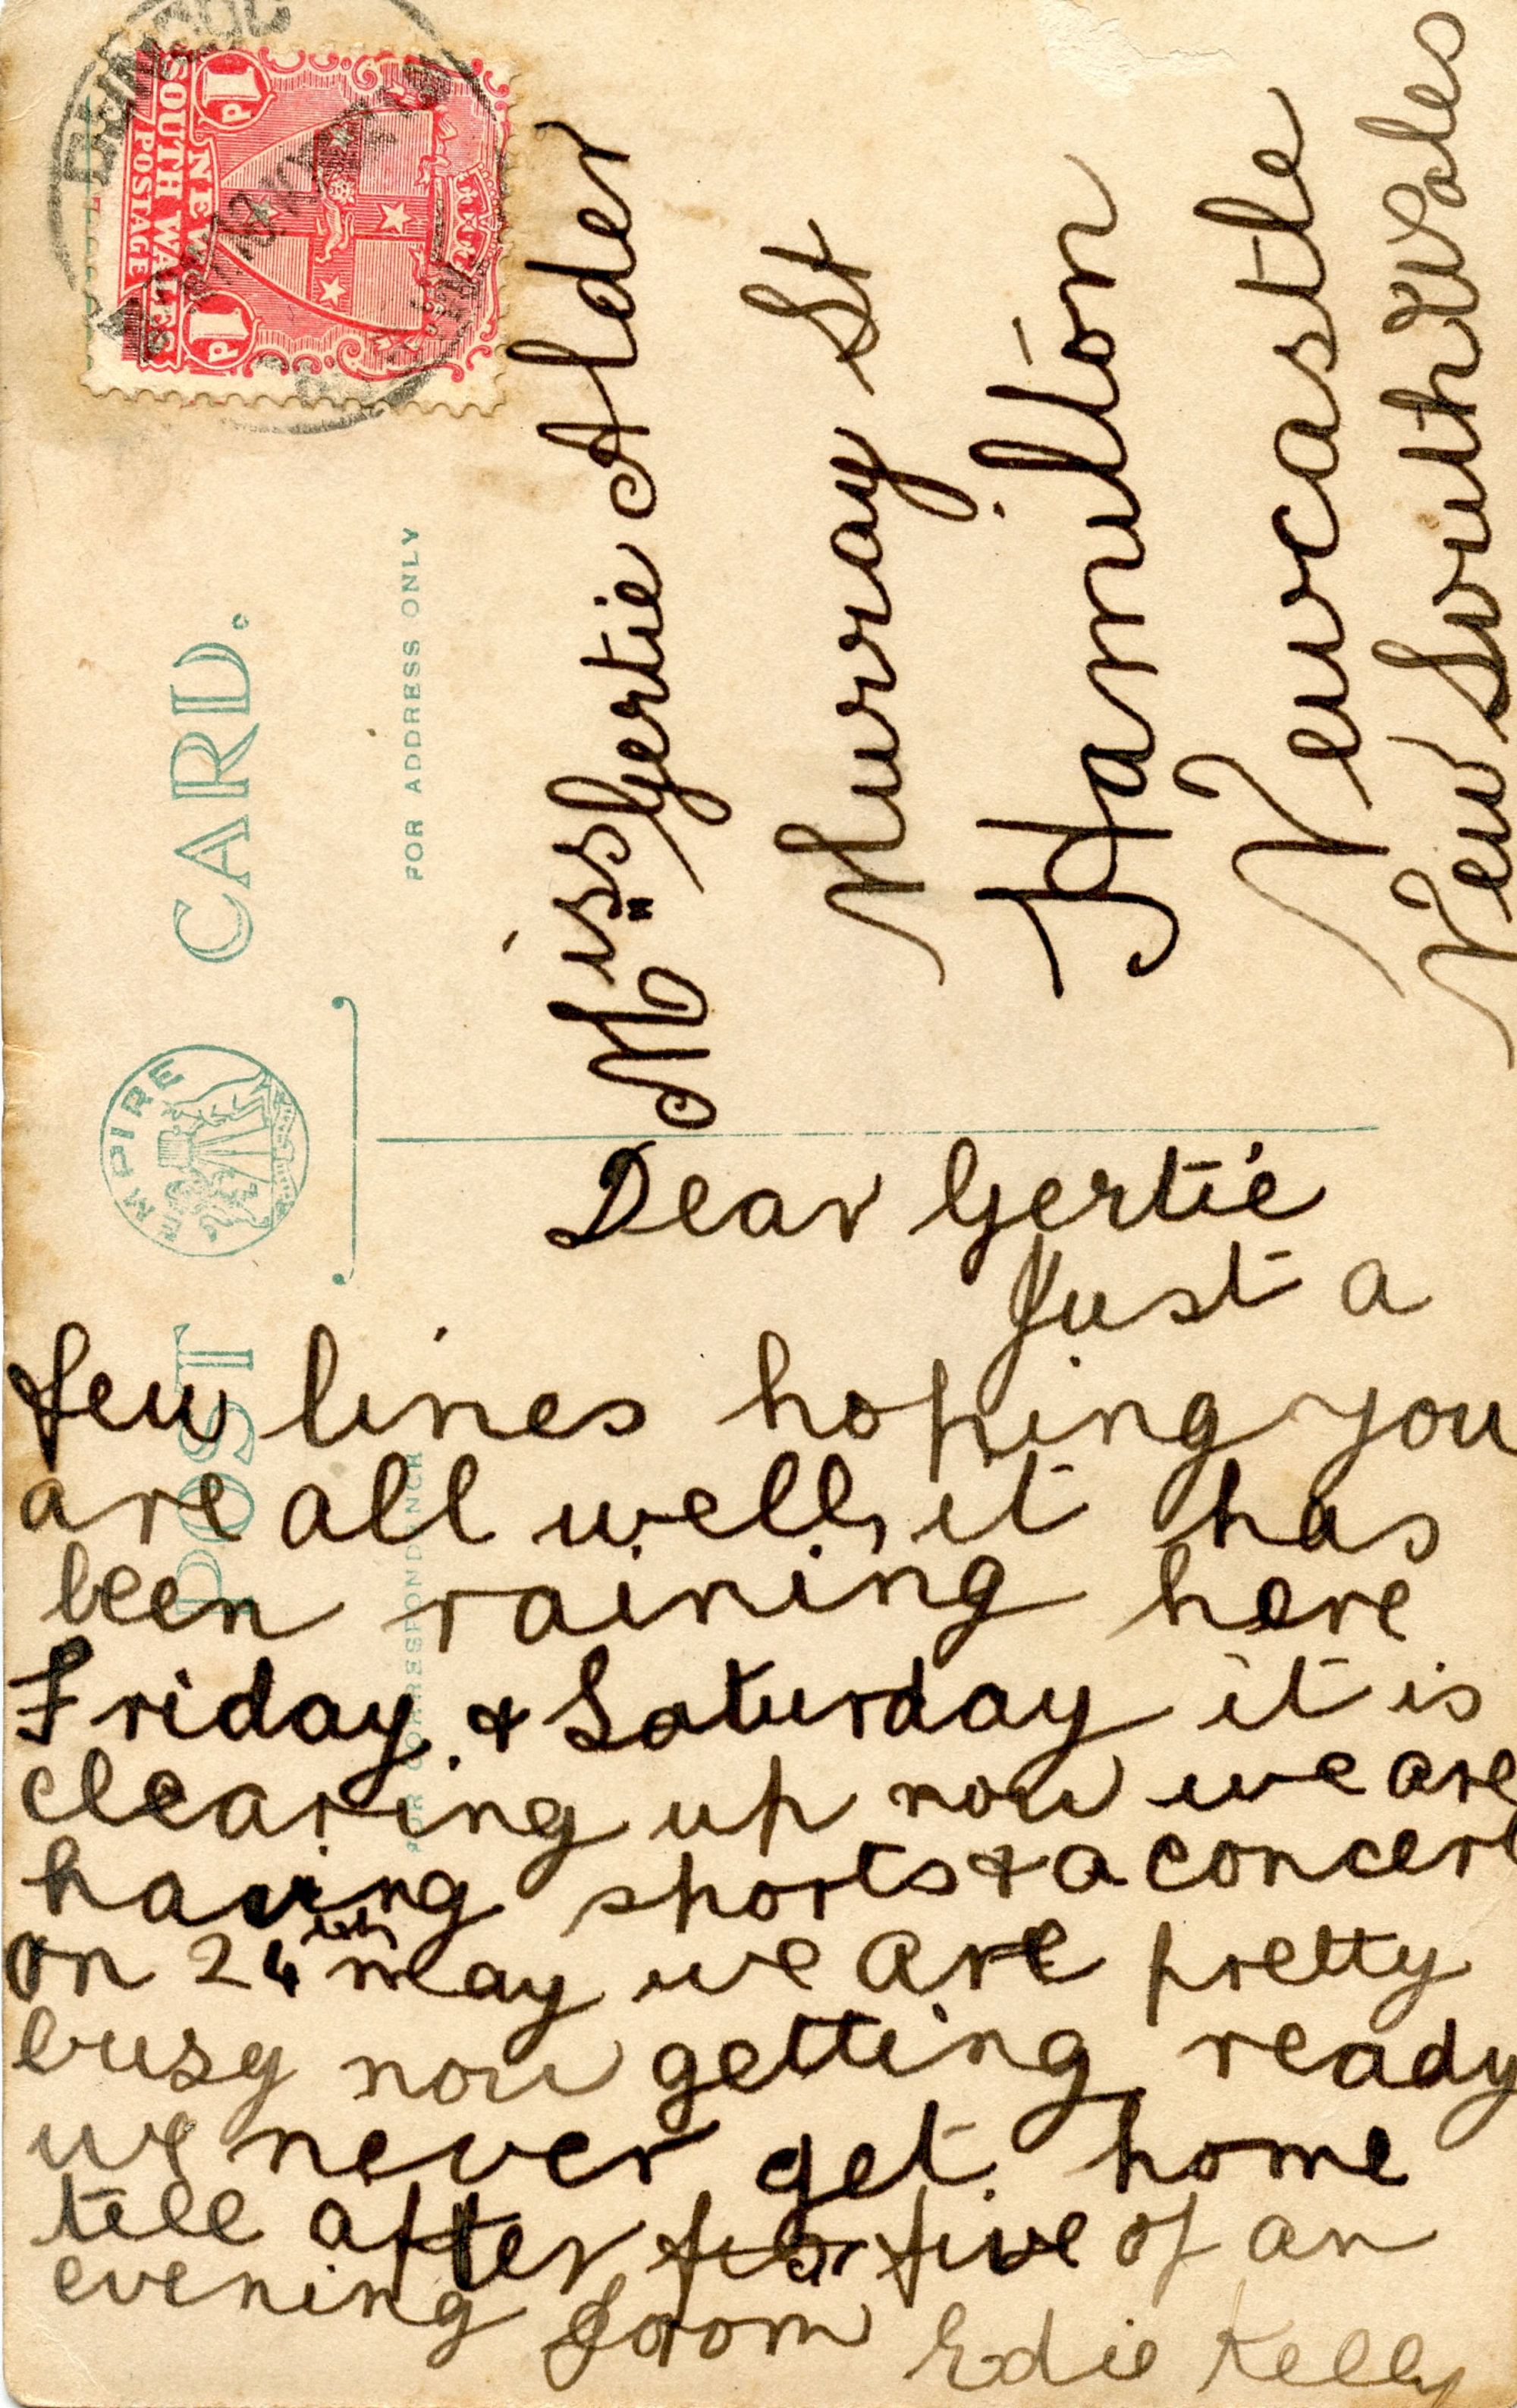 POST CARD.
EMPIRE
FOR ADDRESS ONLY
FOR CORRESPONDENCE
NEW
SOUTH WALES
POSTAGE
1d
1d
Miss Gertie Alder
Murray St
Hamilton
Newcastle
New South Wales
Dear Gertie
Just a
few lines hoping you
are all well, it has
been raining here
Friday & Saturday it is
clearing up now we are
having sports & a concert
on 24th may we are pretty
busy now getting ready
we never get home
till after five of an
evening from Edie Kelly